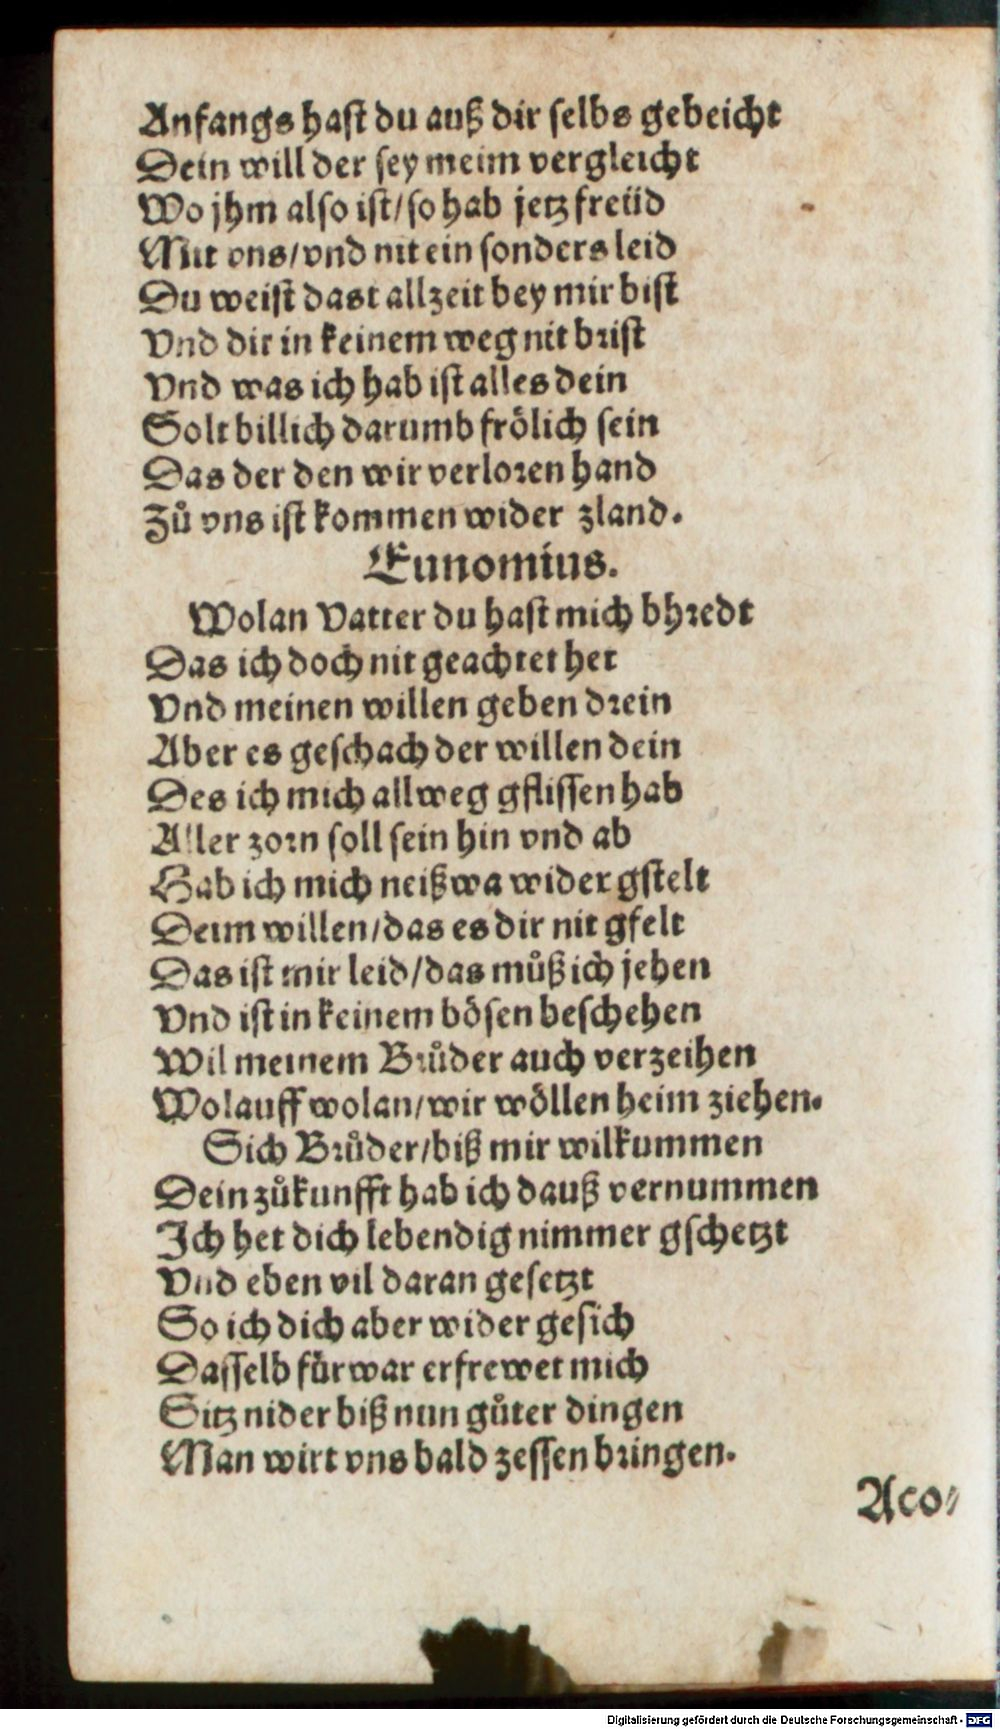 Anfangs hast du auß dir selbs gebeicht
Dein will der sey meim vergleicht
Wo jhm also ist/so hab jetz freüd
Mit vns/vnd nit ein sonders leid
Du weist dast allzeit bey mir bist
Vnd dir in keinem weg nit brist
Vnd was ich hab ist alles dein
Solt billich darumb frölich sein
Das der den wir verloren hand
Zů vns ist kommen wider zland.
Eunomius.
Wolan Vatter du hast mich bhredt
Das ich doch nit geachtet het
Vnd meinen willen geben drein
Aber es geschach der willen dein
Des ich mich allweg gflissen hab
Aller zorn soll sein hin vnd ab
Hab ich mich neißwa wider gstelt
Deim willen/das es dir nit gfelt
Das ist mir leid/das můß ich jehen
Vnd ist in keinem bösen beschehen
Wil meinem Brůder auch verzeihen
Wolauff wolan/wir wöllen heim ziehen.
Sich Brůder/biß mir wilkummen
Dein zůkunfft hab ich dauß vernummen
Ich het dich lebendig nimmer gschetzt
Vnd eben vil daran gesetzt
So ich dich aber wider gesich
Dasselb fürwar erfrewet mich
Sitz nider biß nun gůter dingen
Man wirt vns bald zessen bringen.
Aco⸗
Digitalisierung gefördert durch die Deutsche Forschungsgemeinschaft - DFG